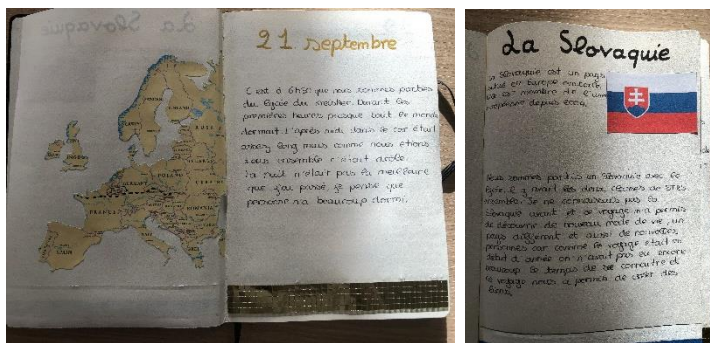 21 septembre
C'est à 6h30 que nous sommes parties
du lycée du mestier. Durant les
premières heures presque tout le monde
dormait. L'après midi dans le car était
assez long mais comme nous étions
tous ensemble c'était drôle
la nuit n'était pas la meilleure
que j'ai passé, je pense que
personne n'a beaucoup dormi.
La Slovaquie
La Slovaquie est un pays
situé en Europe centrale
membre de l'union
européenne depuis
Nous sommes partis en Slovaquie avec le
lycée, il y avait les deux classes de
ensemble. Je ne connaissais pas la
Slovaquie avant et ce voyage m'a permis
de découvrir de nouveau mode de vie, un
pays différent et aussi de nouvelles
personnes car comme le voyage était en
début d'année on n'avait pas eu encore
beaucoup le temps de se connaitre et
ce voyage nous a permis de créer des
liens.